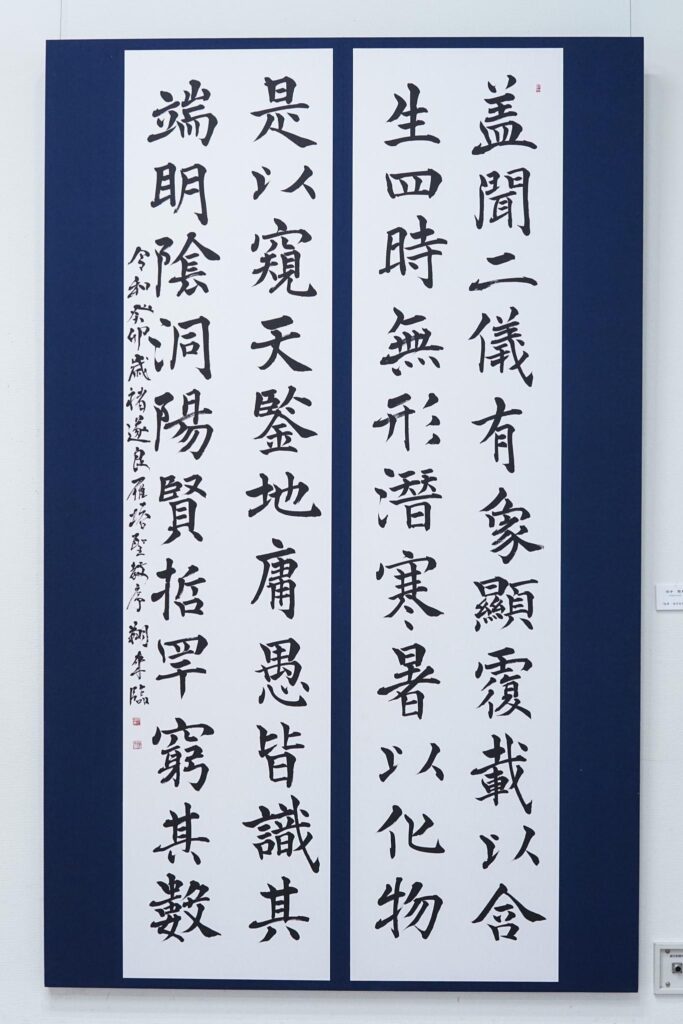 盖聞二儀有象顯覆載以含
生四時無形潛寒暑以化物
是以窺天鑒地庸愚皆識其
端明陰洞陽賢哲罕窮其數
令和癸卯歳褚遂良雁塔聖教序 臨